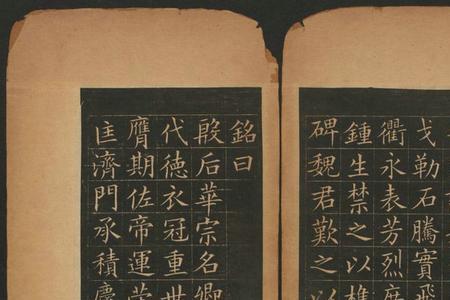 戈勒石騰實飛
衢永表芳烈庶
鍾生禁之以樵
碑魏君歎之以
銘曰
殷后華宗名卿
代德衣冠重世
膺期佐帝運策
匡濟門承積慶